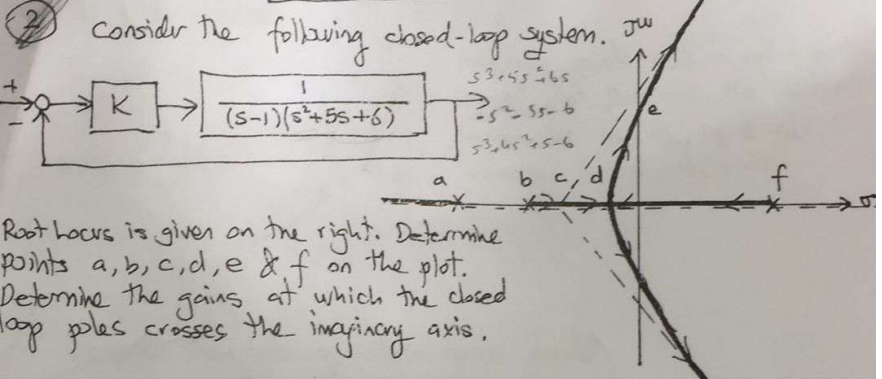 2 Consider the following closed-loop system.
jω
+
-
K
1
(s-1)(s²+5s+6)
s³+5s²+6s
-s²-5s-6
s³+4s²+s-6
a b c d e f
σ
Root Locus is given on the right. Determine
points a, b, c, d, e & f on the plot.
Determine the gains at which the closed
loop poles crosses the imaginary axis.